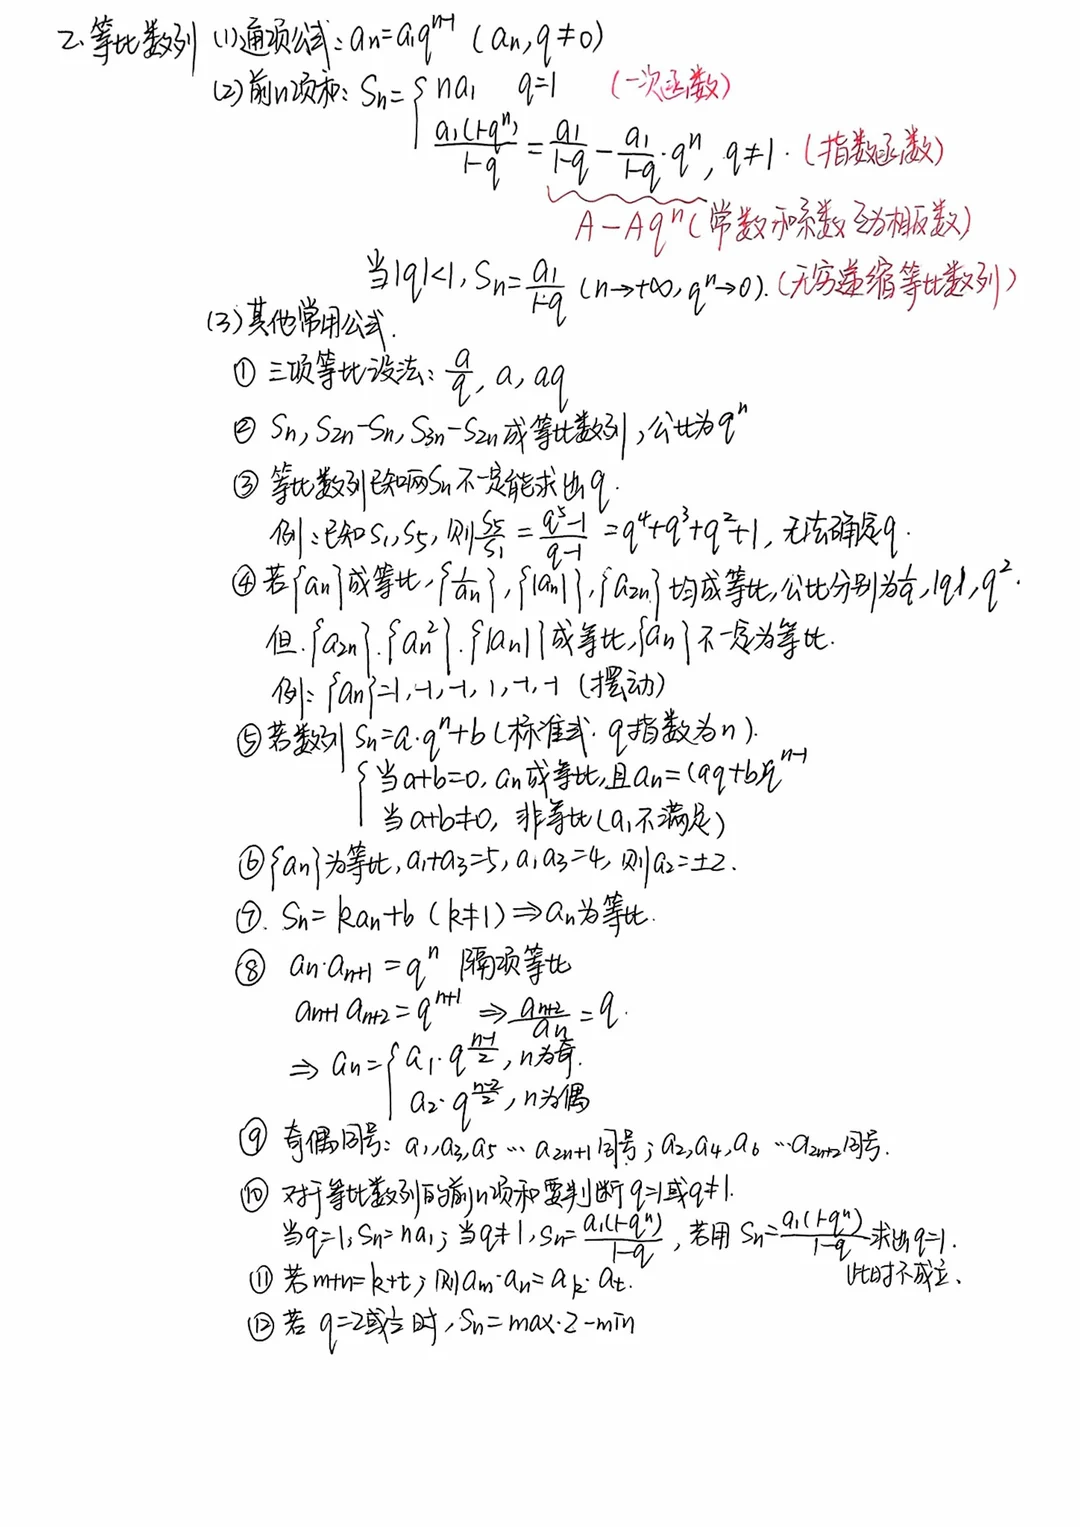 二、等比数列 (1)通项公式:an=a₁qⁿ⁻¹ (an,q≠0)
(2)前n项和: Sn={ na₁ q=1 (一次函数)
a₁(1-qⁿ)/1-q = a₁/1-q - a₁/1-q·qⁿ, q≠1. (指数函数)
A-Aqⁿ(常数和系数互为相反数)
当|q|<1, Sn=a₁/1-q (n→+∞,qⁿ→0). (无穷递缩等比数列)
(3)其他常用公式.
① 三项等比设法: a/q, a, aq
② Sn, S2n-Sn, S3n-S2n成等比数列,公比为qⁿ
③ 等比数列已知两Sn不一定能求出q.
例:已知S₁,S₅,则S₅/S₁=q⁵-1/q-1=q⁴+q³+q²+1,无法确定q.
④ 若{an}成等比,{1/an},{|an|},{a2n}均成等比,公比分别为1/q,|q|,q².
但.{a2n}.{an²}.{|an|}成等比,{an}不一定为等比.
例:{an}=1,-1,-1,1,-1,-1 (摆动)
⑤ 若数列Sn=a·qⁿ+b(标准式.q指数为n).
{ 当a+b=0, an成等比,且an=(aq+b)qⁿ⁻¹
当a+b≠0, 非等比(a₁不满足)
⑥ {an}为等比,a₁+a₃=5,a₁a₃=4,则a₂=±2.
⑦. Sn=kan+b (k≠1)⇒an为等比.
⑧ an·an+1=qⁿ 隔项等比
an+1 an+2=qⁿ⁺¹ ⇒ an+2/an=q.
⇒ an={ a₁·q^(n-1/2), n为奇.
a₂·q^(n-2/2), n为偶
⑨ 奇偶同号: a₁,a₃,a₅…a2n+1同号;a₂,a₄,a₆…a2n+2同号.
⑩ 对于等比数列的前n项和要判断q=1或q≠1.
当q=1,Sn=na₁;当q≠1,Sn=a₁(1-qⁿ)/1-q,若用Sn=a₁(1-qⁿ)/1-q求出q=1.
此时不成立.
⑪ 若m+n=k+t,则am·an=ak·at.
⑫ 若q=2或1/2时,Sn=max·2-min